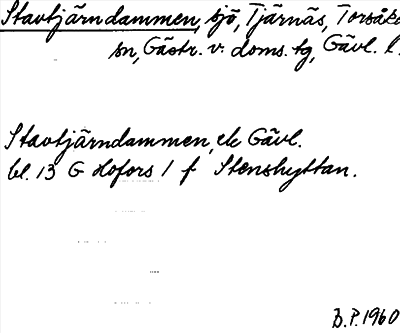 Stavtjärndammen, sjö, Tjärnäs, Torsåke
sn, Gästr. v. doms. tg, Gävl. l.
Stavtjärndammen, ek Gävl.
bl. 13 G Hofors 1 f Stenshyttan.
B.P. 1960